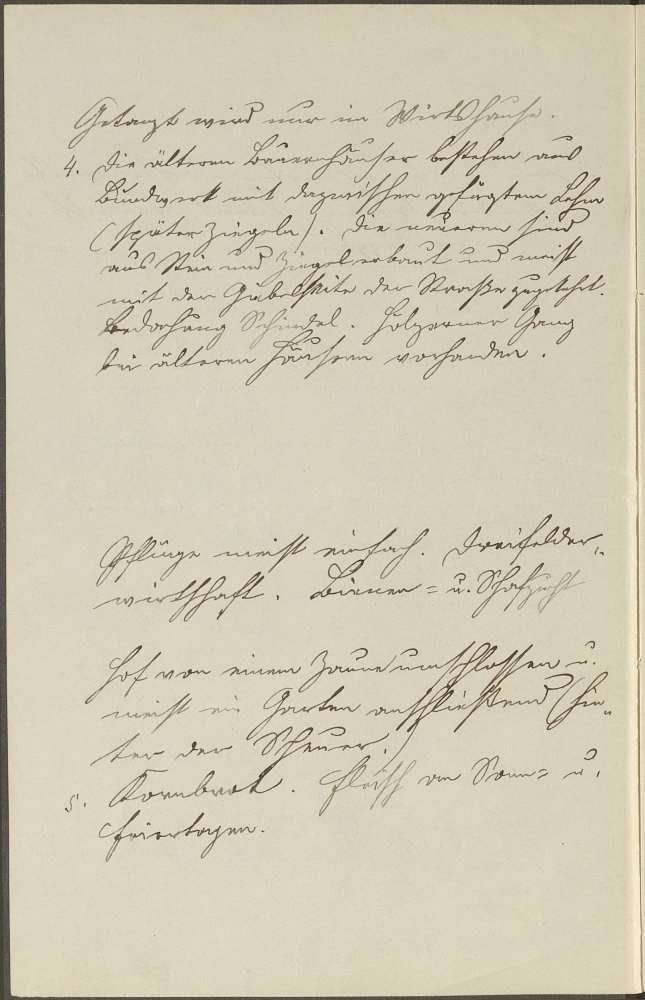 Getanzt wird nur im Wirtshause.
4. Die älteren Bauernhäuser bestehen aus
Bundwerk mit dazwischen gefügtem Lehm
(später Ziegeln). Die neueren sind
aus Stein und Ziegel erbaut und meist
mit der Giebelseite der Straße zugekehrt.
Bedachung Schindel. Hölzerner Gang
bei älteren Häusern vorhanden.
Pflüge meist einfach. Dreifelder„
wirtschaft. Bienen= u. Schafzucht
Hof von einem Zaune umschlossen u.
meist ein Garten anschließend (hin„
ter der Scheuer.)
5. Kornbrot. Fleisch an Sonn= u.
Feiertagen.